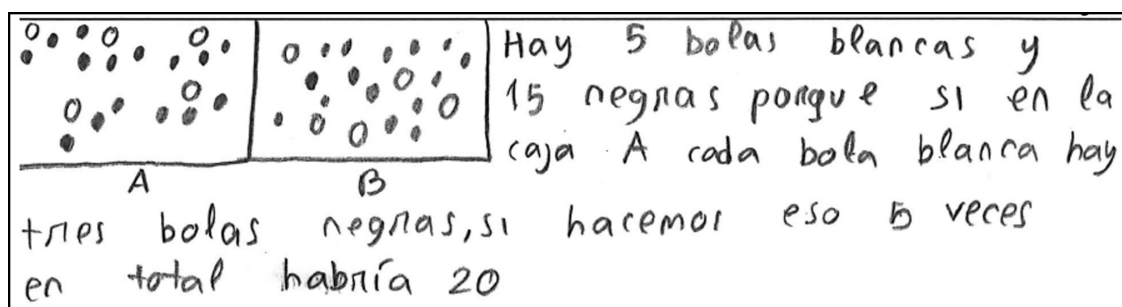 Hay 5 bolas blancas y
15 negras porque si en la
caja A cada bola blanca hay
A B
tres bolas negras, si hacemos eso 5 veces
en total habría 20